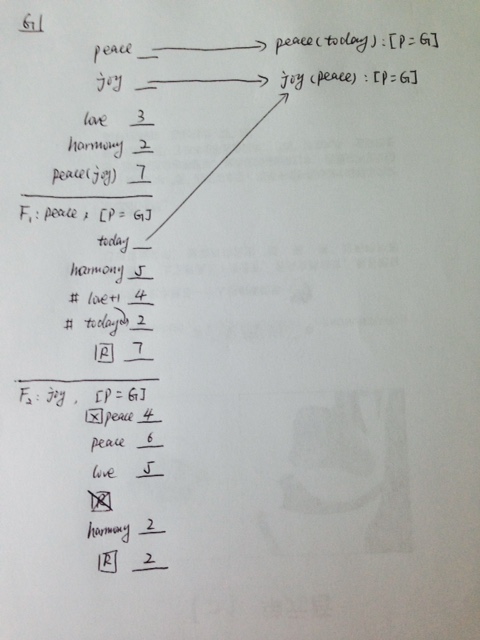 G1
peace __ → peace(today) : [P = G]
joy __ → joy(peace) : [P = G]
love 3
harmony 2
peace(joy) 7
F1 : peace, [P = G]
today __
harmony 5
# love+1 4
# today(2) 2
R 7
F2 : joy, [P = G]
X peace 4
peace 6
love 5
R
harmony 2
R 2